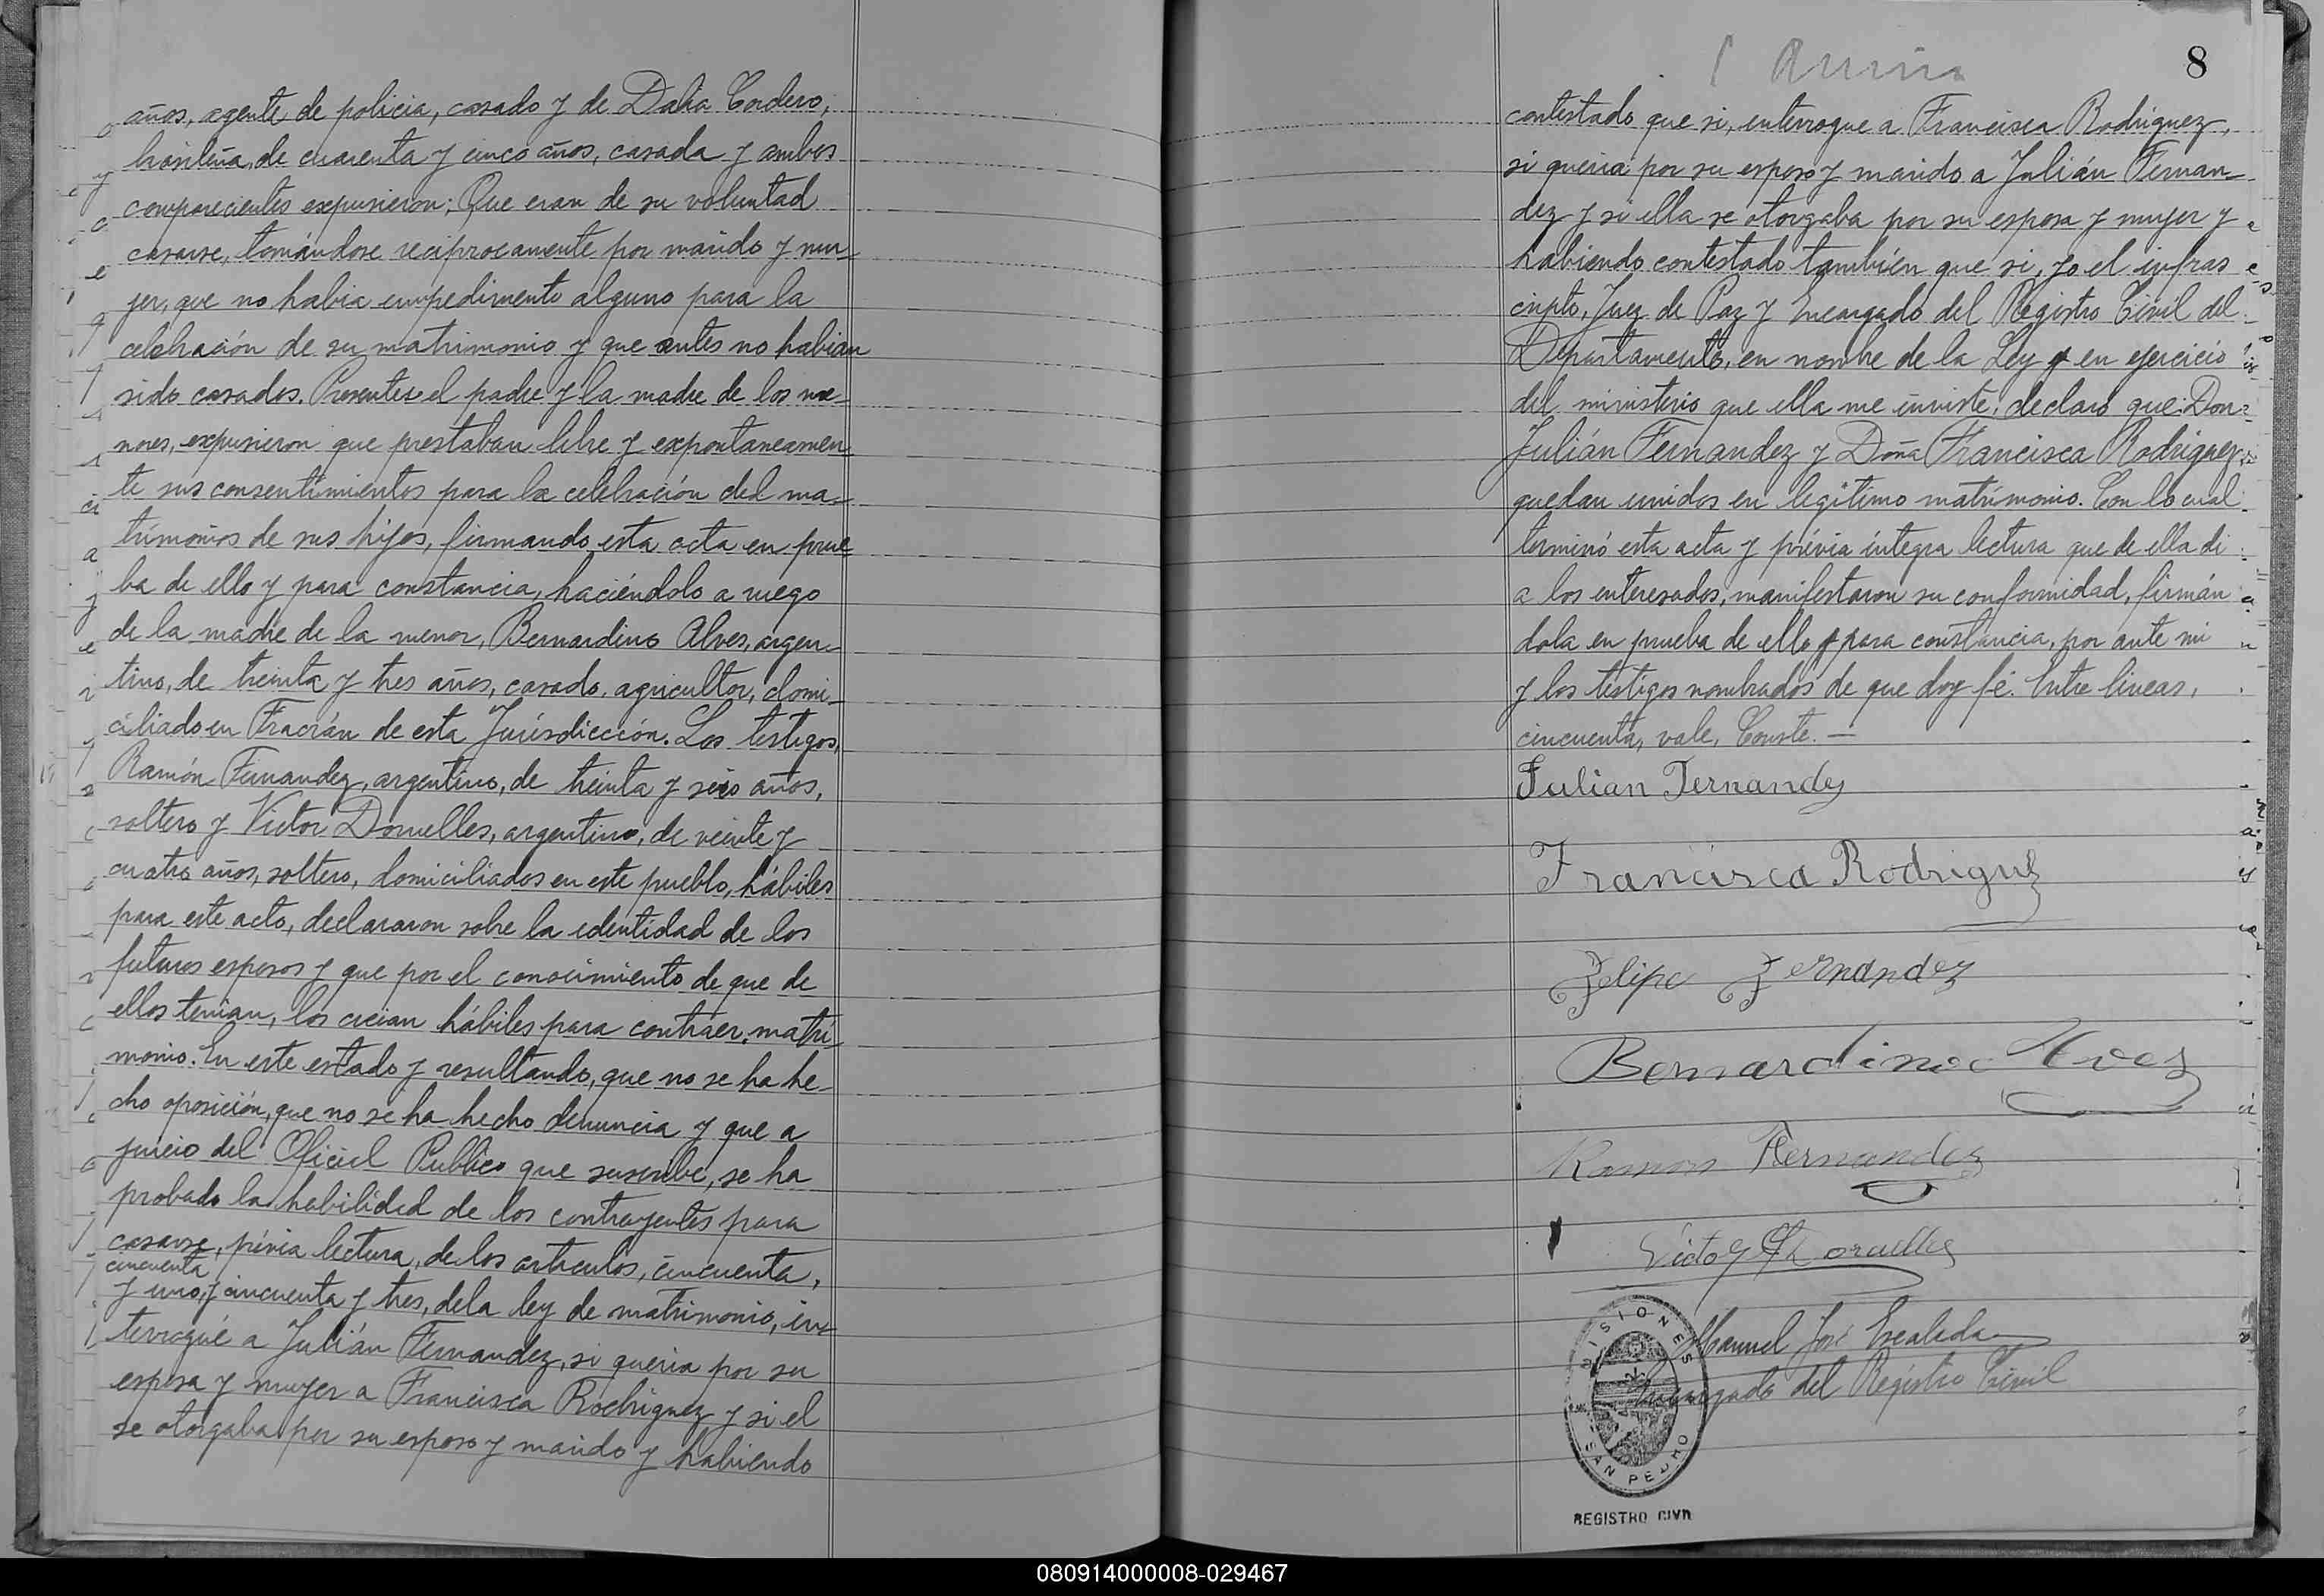 años, agente de policia, casado y de Dalia Cordero,
brasileña, de cuarenta y cinco años, casada y ambos
comparecientes expusieron: Que eran de su voluntad
casarse, tomándose reciprocamente por marido y mu-
jer, que no habia empedimento alguno para la
celebración de su matrimonio y que antes no habian
sido casados. Presentes el padre y la madre de los me-
nores, expusieron que prestaban libre y expontaneamen
te sus consentimientos para la celebración del ma-
trimonios de sus hijos, firmando esta acta en prue
ba de ello y para constancia, haciéndolo a ruego
de la madre de la menor, Bernardino Alves, argen-
tino, de treinta y tres años, casado, agricultor, domi-
ciliado en Fracrán de esta Jurisdicción. Los testigos,
Ramón Fernandez, argentino, de treinta y seis años,
soltero y Victor Dornelles, argentino, de veinte y
cuatro años, soltero, domiciliados en este pueblo, hábiles
para este acto, declararon sobre la edentidad de los
futuros esposos y que por el conocimiento de que de
ellos tenian, los creian hábiles para contraer matri-
monio. En este estado y resultando, que no se ha he-
cho oposición, que no se ha hecho denuncia y que a
juicio del Oficial Publico que suscribe, se ha
probado la habilidad de los contrayentes para
casarse, prévia lectura, de los articulos, cincuenta,
cincuenta
y uno, y cincuenta y tres, de la ley de matrimonio, in-
terrogué a Julián Fernandez, si queria por su
esposa y mujer a Francisca Rodriguez y si el
se otorgaba por su esposo y marido y habiendo
8
contestado que si, enterrogue a Francisca Rodriguez,
si queria por su esposo y marido a Julián Fernan-
dez y si ella se otorgaba por su esposa y mujer y
habiendo contestado también que si, yo el infras
cripto, Juez de Paz y Encargado del Registro Civil del
Departamento, en nombre de la Ley y en ejercicio
del ministerio que ella me inviste, declaro que: Don
Julián Fernandez y Doña Francisca Rodriguez
quedan unidos en legitimo matrimonio. Con lo cual
terminó esta acta y prévia integra lectura que de ella di
a los enteresados, manifestaron su conformidad, firmán
dola en prueba de ello y para constancia, por ante mi
y los testigos nombrados de que doy fé. Entre lineas,
cincuenta, vale, Conste. —
Julian Fernandez
Francisca Rodriguez
Felipe Fernandez
Bernardino Alves
Ramon Fernandez
Victor Dornelles
Manuel José Escalada
Encargado del Registro Civil
MISIONES
SAN PEDRO
REGISTRO CIVIL
080914000008-029467